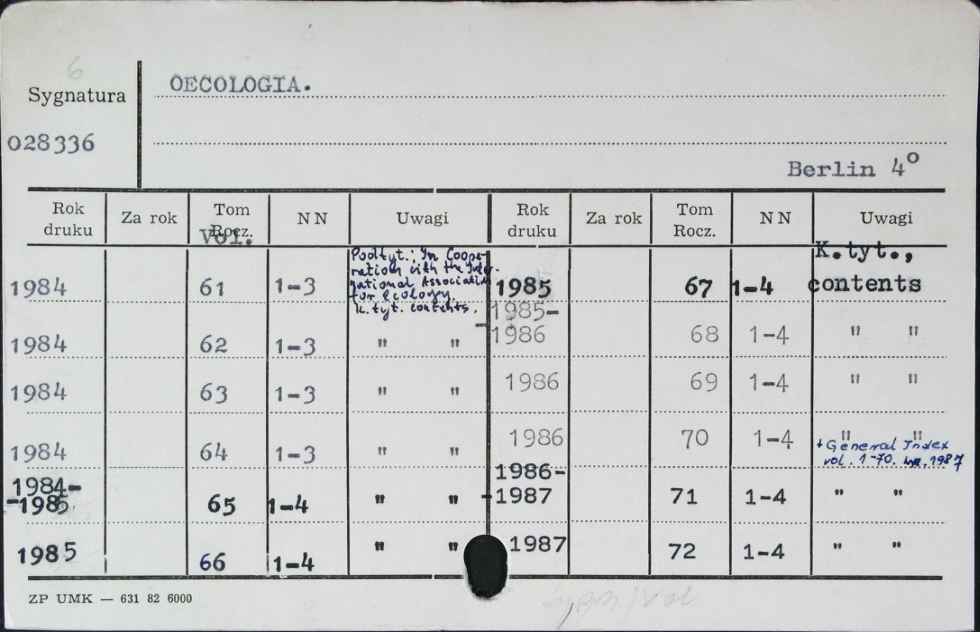 6
Sygnatura
OECOLOGIA.
028336
Berlin 4°
Rok druku Za rok Tom Rocz. NN Uwagi Rok druku Za rok Tom Rocz. NN Uwagi
Vol.
1984 61 1-3 Podtyt.: In Coope-
ration with the Inter-
national Association
for ecology.
k. tyt. contents.
1985 67 1-4 K.tyt.,
contents
1984 62 1-3 " "
1985-
1986 68 1-4 " "
1984 63 1-3 " "
1986 69 1-4 " "
1984 64 1-3 " "
1986 70 1-4 " "
+ General Index
vol. 1-70. 1987
1984-
-1985 65 1-4 " "
1986-
-1987 71 1-4 " "
1985 66 1-4 " "
1987 72 1-4 " "
ZP UMK — 631 82 6000